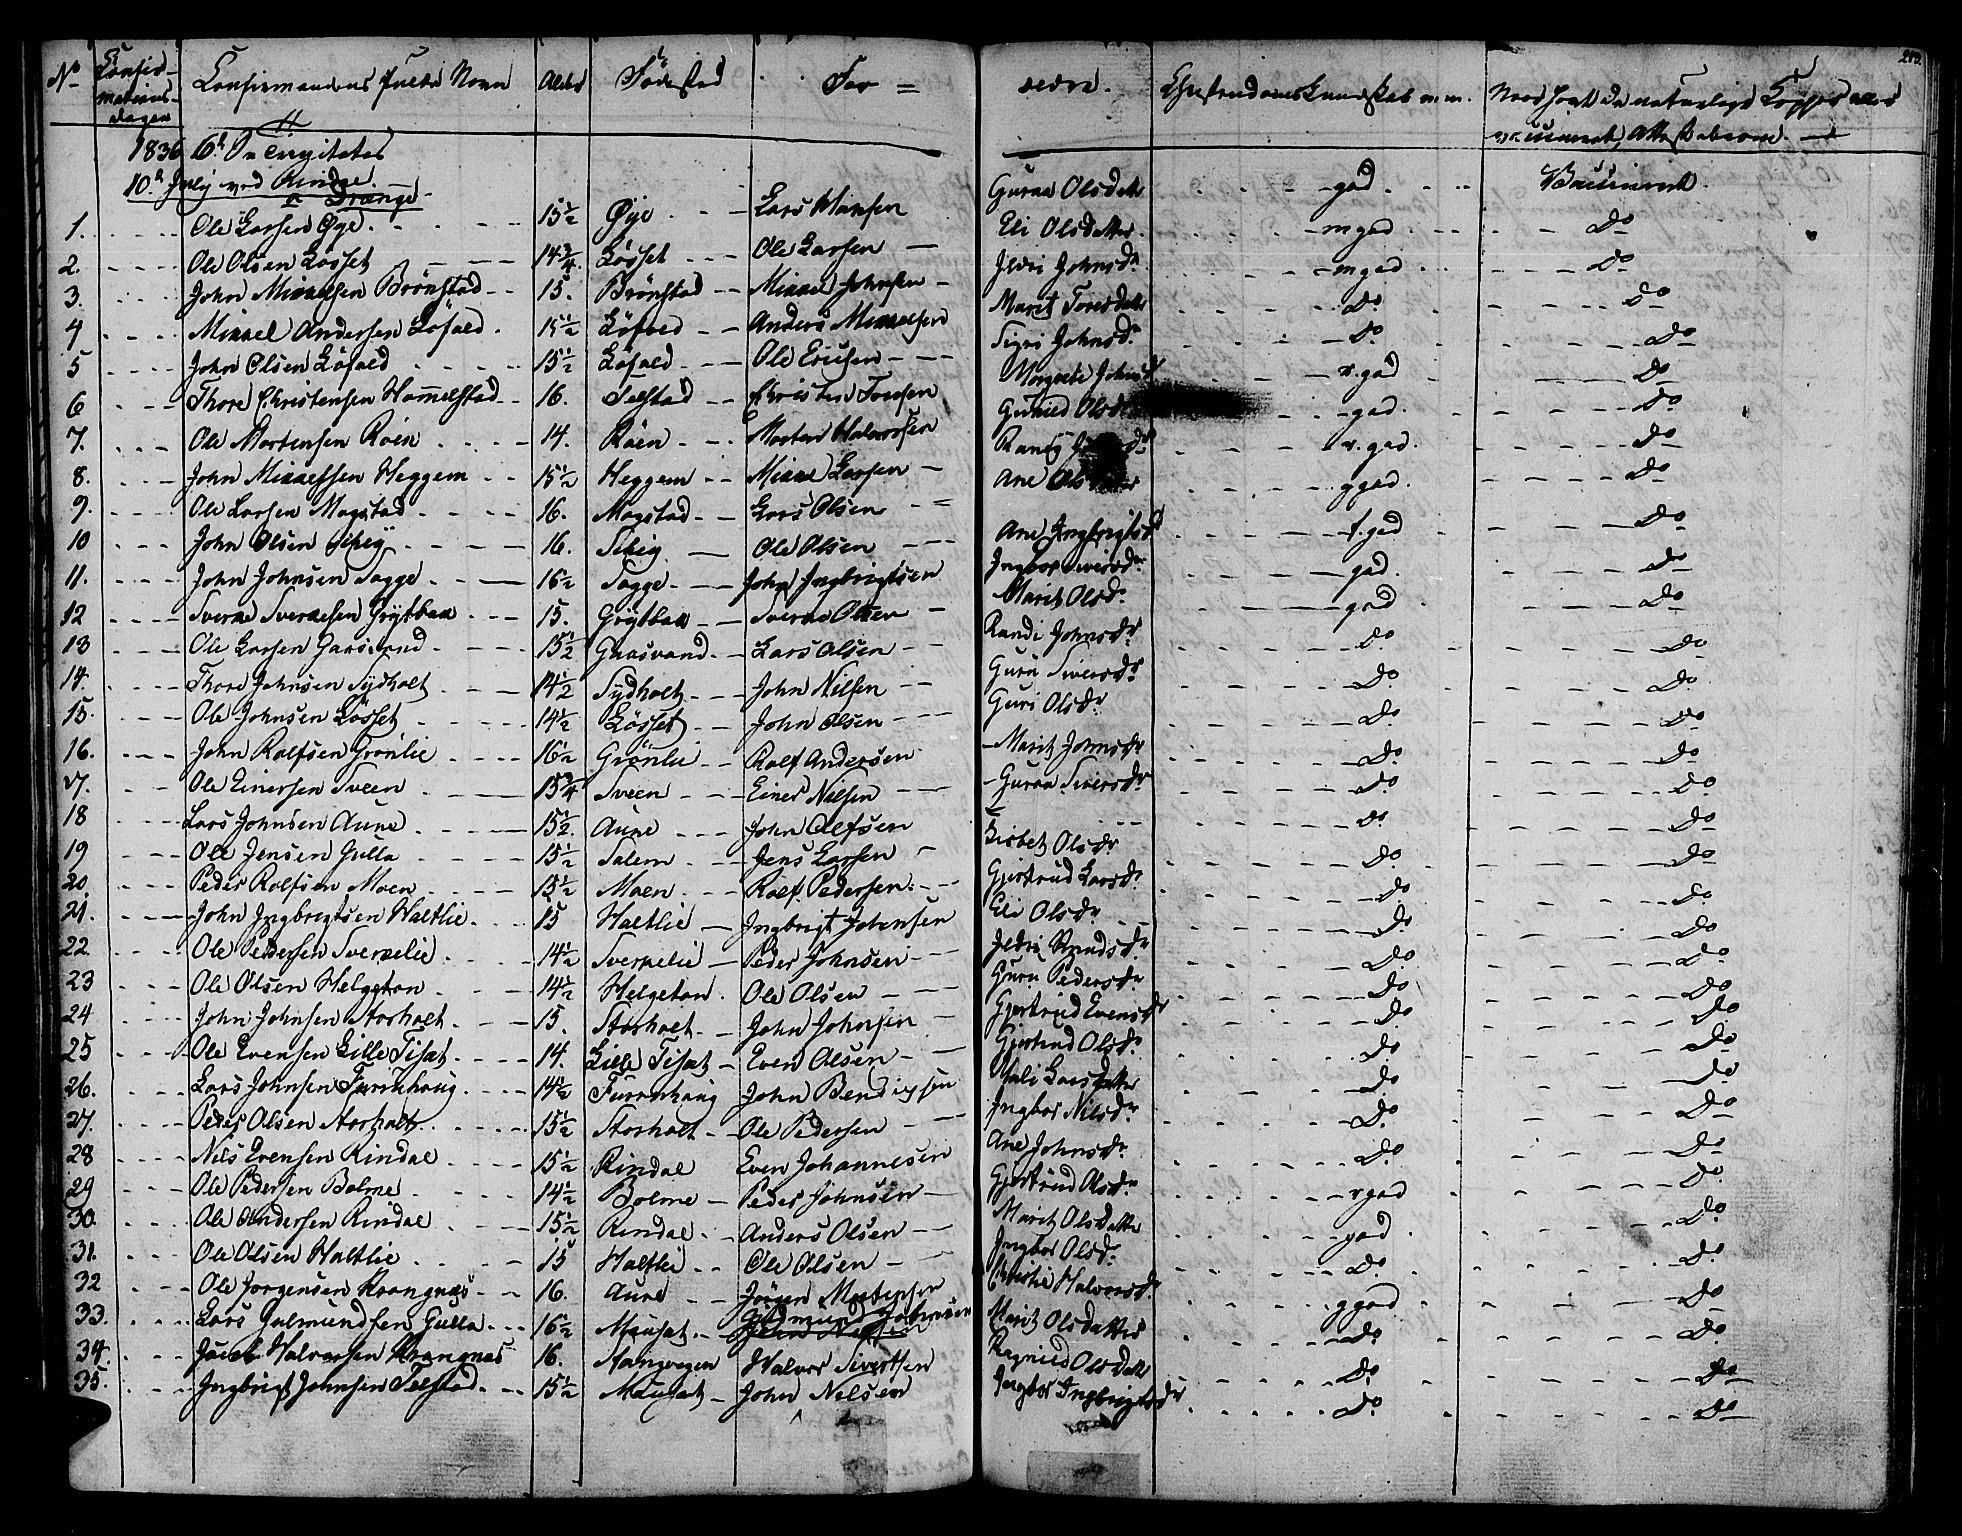 No Confirmationsdagen Confirmandens fulde Navn Alder Fødested For= ældre. Christendomskundskab m.m. 213.
1836 6te S: Trinitatis
10de July ved Rindal.
Drenge
1. Ole Larsen Øye. 15½ Øye Lars Hansen Guraa Olsdatt god Vaccineret.
2. Ole Olsen Løsset 14¾ Løsset Ole Larsen Eli Olsdatter mgod Do
3. John Mikkelsen Brønstad 15. Brønstad Mikkel Johnsen Ildri Johnsdr mgod Do
4 Mikkel Andersen Løfald. 15½ Løfald Anders Mikkelsen Marit Toresdatt Do Do
5 John Olsen Løfald 15½ Løfald Ole Ericsen Sigri Johnsdr Do Do
6 Thore Christensen Hammelstad 16. Telstad Christen Toresen Margrete Johnsdr r.god Do
7. Ole Mortensen Røen 14. Røen Morten Halvorsen Gunild Olsd god. Do
8. John Mikkelsen Heggem 15½ Heggem Mikkel Larsen Randi r.god. Do
9. Ole Larsen Mogstad 16. Mogstad Lars Olsen Ane Ols ggod. Do
10 John Olsen 16. Ole Olsen Ane Ingbrigtsd t.god Do
11. John Johnsen Togge 16½ Togge John Ingbrigtsen Ingbor Siversdr god. Do
12 Sverke Sverkesen Grytbak 15. Grytbak Sverke Olsen Marit Olsdr god Do
13 Ole Larsen Gaasvand 15½ Gaasvand Lars Olsen Randi Johnsdr Do Do
14. Thore Johnsen Sydholt 14½ Sydholt John Nilsen Guru Siversdr Do Do
15. Ole Johnsen Løsset 14½ Løsset John Olsen Guri Olsdr Do Do
16. John Rolfsen Grønlie 16½ Grønlie Rolf Andersen Marit Johnsdr Do Do
17. Ole Einersen Sveen 15¾ Sveen Einer Nilsen Guraa Siversdr Do Do
18 Lars Johnsen Aune 15½ Aune John Olefsen Do Do
19 Ole Jensen Gulla 15½ Salem Jens Larsen Lisbet Olsdr Do Do
20. Peder Rolfsen Moen 15½ Moen Rolf Pedersen Gjertrud Larsdr Do Do
21. John Ingbrigtsen Haltlie 15 Haltlie Ingbrigt Johansen Eli Olsdr Do Do
22 Ole Pedersen Sverkelie 14½ Sverkelie Peder Johnsen Ildri Do Do
23 Ole Olsen Helgeton 14½ Helgeton. Ole Olsen Guru Pedersdr Do Do
24 John Johnsen Storholt. 15. Storholt John Johnsen Gjertrud Evensdr Do Do
25 Ole Evensen Lille Tiset 14. Lille Tiset Even Olsen Gjertrud Olsdr Do Do
26. Lars Johnsen Furuhoug 14½ Furuhoug John Bendigsen Mali Larsdatter Do Do
27. Peder Olsen Storholt 15½ Storholt Ole Pedersen Ingbor Nilsdr Do Do
28 Nils Evensen Rindal 15½ Rindal Even Johannesen Ane Johnsdr Do Do
29 Ole Pedersen Bolme 14½ Bolme Peder Johnsen Gjertrud Olsdr rgod Do
30. Ole Andersen Rindal 15½ Rindal Anders Olsen Marit Olsdatter god Do
31. Ole Olsen Haltlie 15 Haltlie Ole Olsen Ingbor Olsdr Do Do
32 Ole Jorgensen Krangnæs 16. Aune Jörgen Halvorsdr ggod Do
33. Lars Gudmundsen Gulla 16½ Gudmund Johnsen Marit Olsdatter Do Do
34 Jacob Halvorsen Krangnæs 16. Stangvigen Halvor Sivertsen Ragnild Olsdatt Do Do
35. Ingbrigt Johnsen Telstad 15½ John Nilsen Ingbor Ingbrigtsdr Do Do